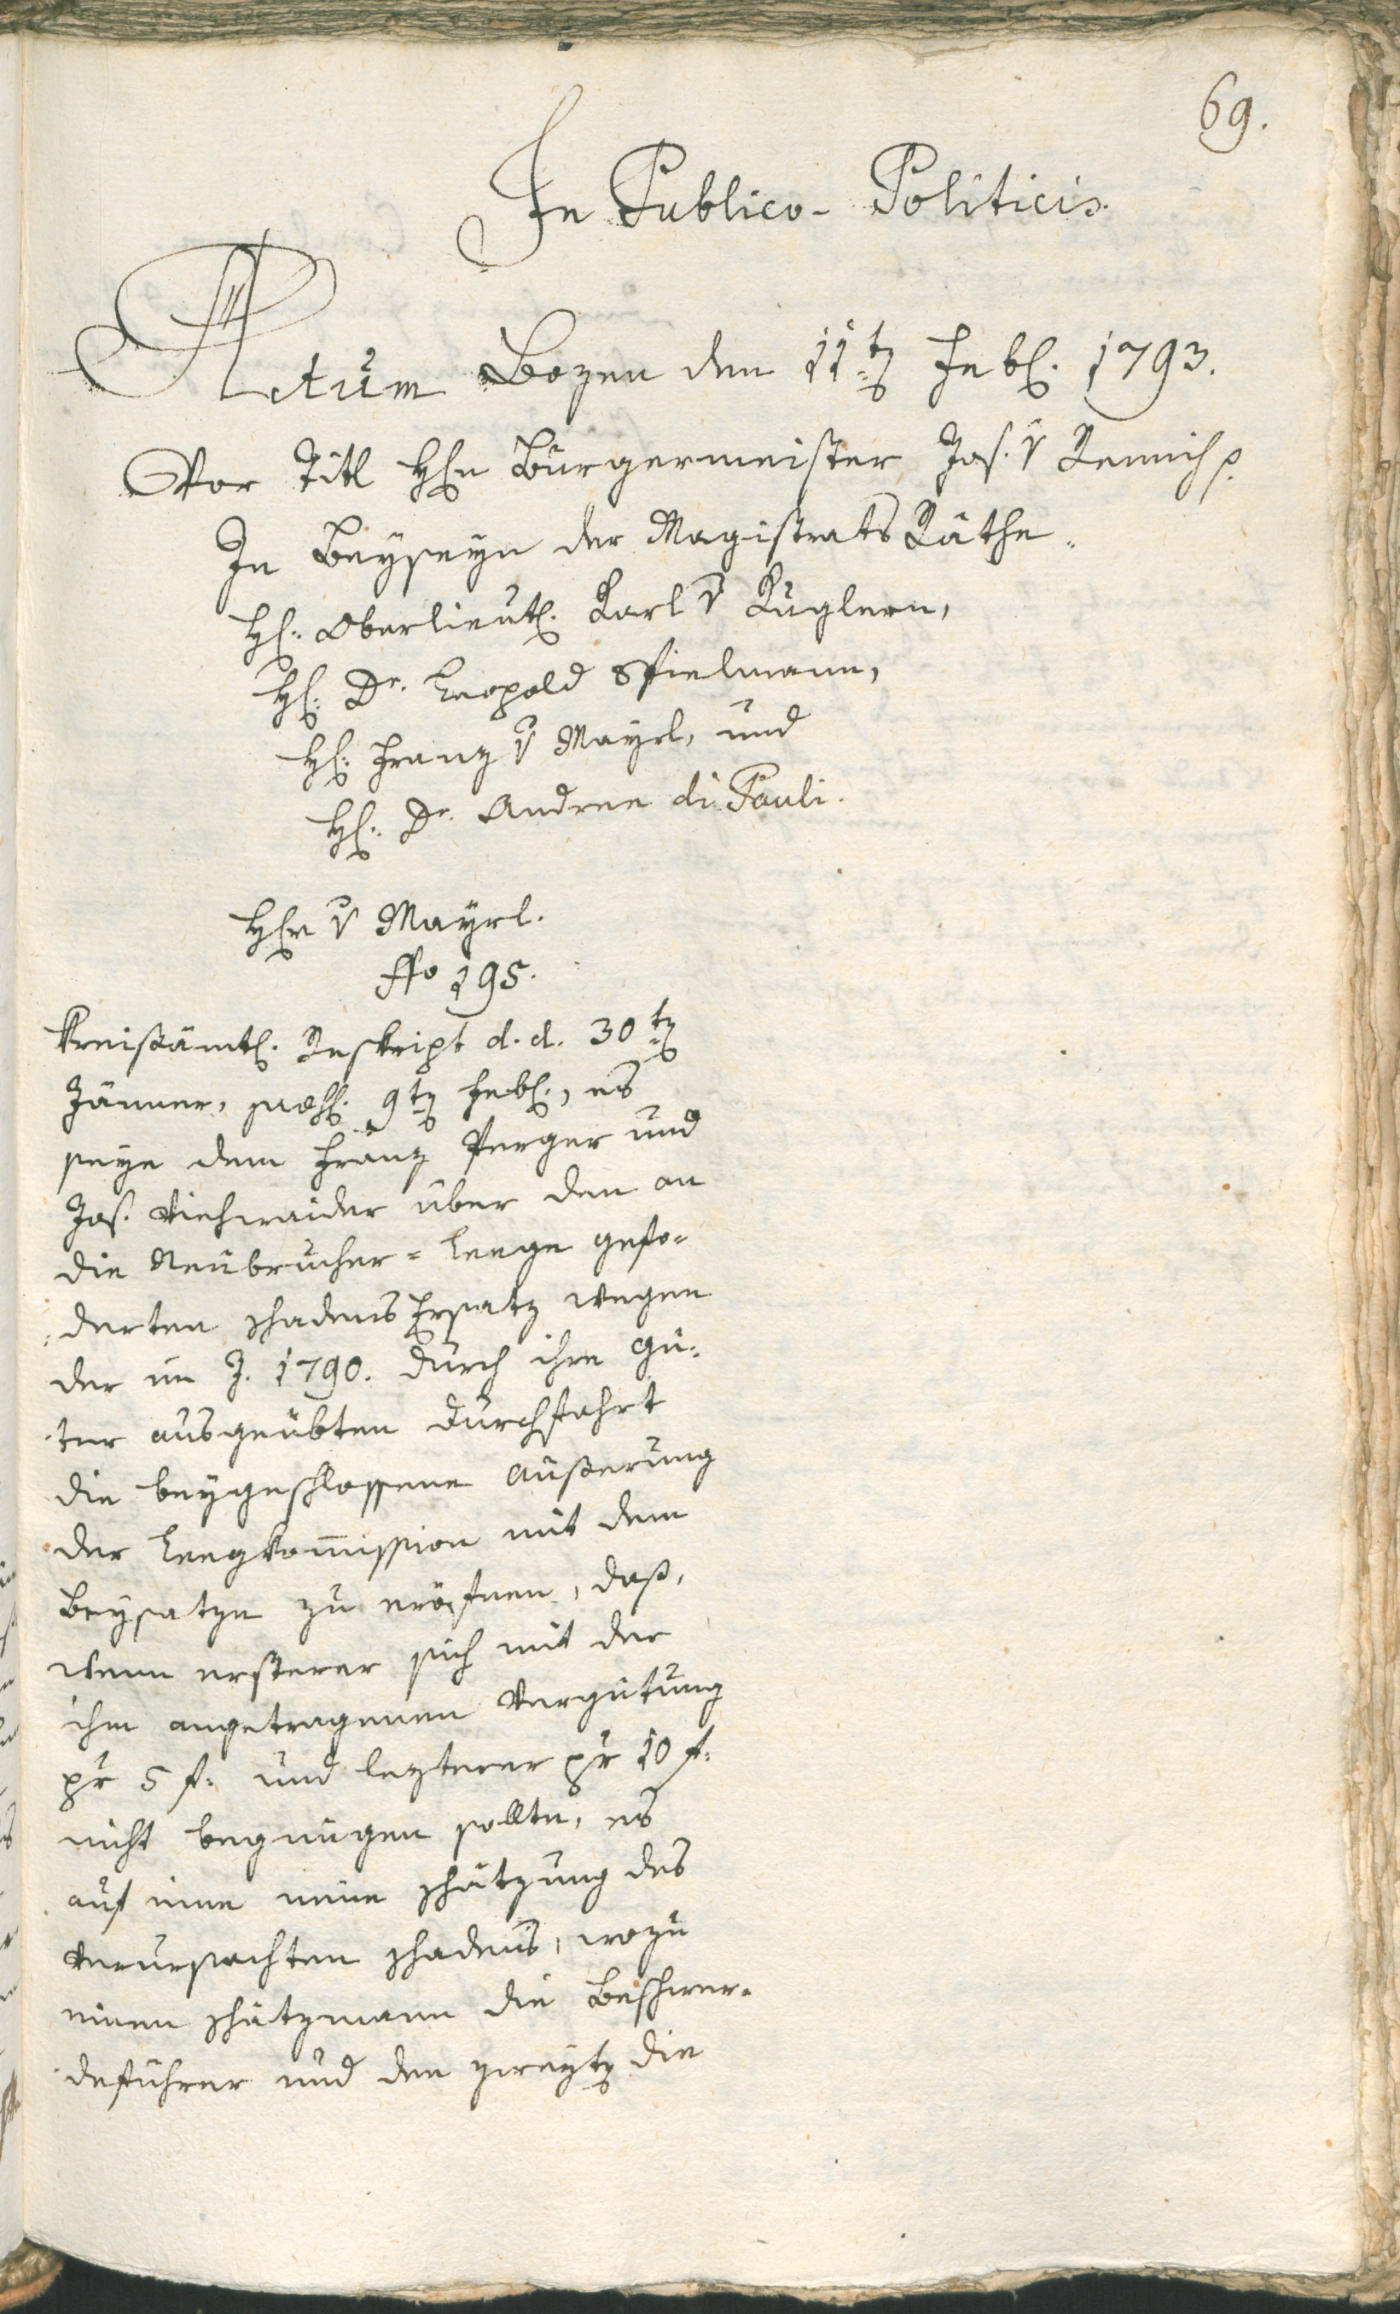 69.
In Publico-Politicis.
Actum Bozen den 11ten Febr. 1793.
Vor Titl Hrn Bürgermeister Jos. v Remich p.
In Beyseyn der Magistrats Räthe.
Hr. Oberlieut. Karl v Kuglern,
Hr. Dr. Leopold Spielmann,
Hr. Franz v Mayrl, und
Hr. Dr. Andree di Pauli.
Hr v Mayrl.
No 195.
Kreisämtl. Reskript d. d. 30ten
Jänner, præs. 9ten Febr., es
seye dem Franz Perger und
Jos. Viehwaider über den an
die Neubrucher-Leege gefo-
derten Schadens Ersatz wegen
der im J. 1790. durch ihre Gü-
ter ausgeübten Durchfahrt
die beygeschlossene Äußerung
der Leegkom̅ission mit dem
Beysatze zu eröfnen, daß,
wenn ersterer sich mit der
ihm angetragenen Vergütung
pr 5 f. und lezterer pr 10 f.
nicht begnügen sollte, es
auf eine neue Schätzung des
verursachten Schadens, wozu
einen Schätzmann die Beschwer-
deführer und den zweyten die